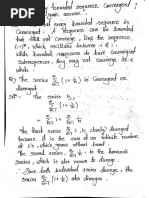 bounded sequence Convergent ?
answer.
every bounded sequence is
Convergent. A sequence can be bounded
but still not converge, like the sequence
(-1)ⁿ, which oscillates between -1 & 1.
while bounded sequences do have Convergent
Subsequences, they may not Converge as a
whole.
Q) The Series ∑ (1 + 1/n) is Convergent or
divergent.
Sol - The series is,
∑ (1 + 1/n)
The first series ∑ 1, is clearly divergent
because it is the sum of an infinite number
of 1's, which grows without bound.
The second series ∑ 1/n, is the harmonic
Series, which is also known to diverge.
Since both individual series diverge, the
Series ∑ (1 + 1/n) also diverges.